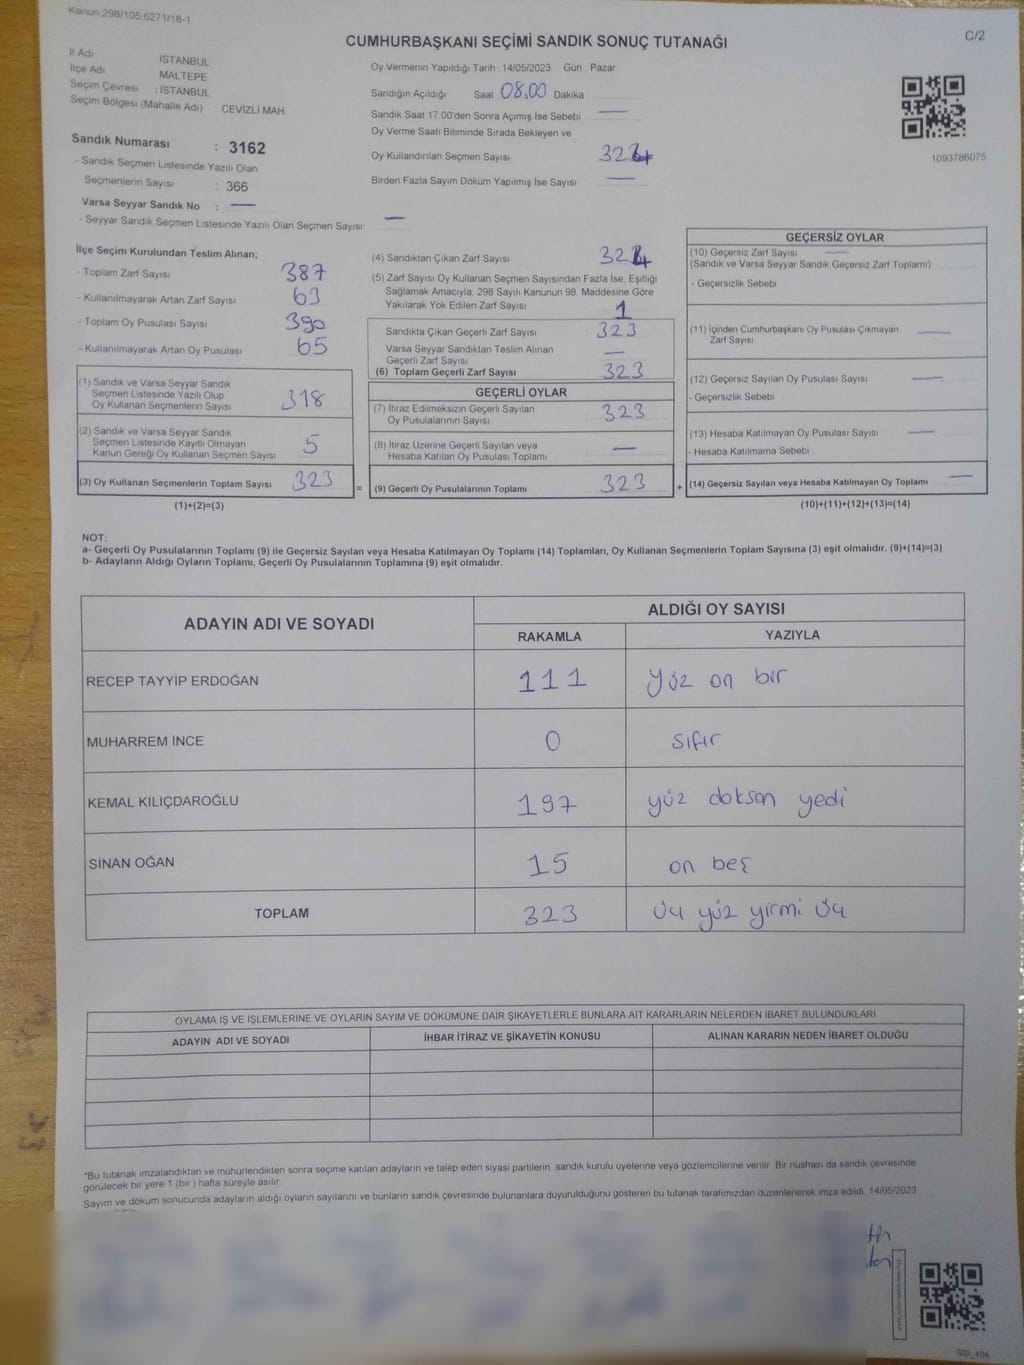 Kanun:298/105,6271/18-1
C/2
CUMHURBAŞKANI SEÇİMİ SANDIK SONUÇ TUTANAĞI
İl Adı : İSTANBUL
İlçe Adı MALTEPE
Seçim Çevresi : İSTANBUL
Seçim Bölgesi (Mahalle Adı) CEVİZLİ MAH
Sandık Numarası : 3162
- Sandık Seçmen Listesinde Yazılı Olan
Seçmenlerin Sayısı : 366
Varsa Seyyar Sandık No : —
- Seyyar Sandık Seçmen Listesinde Yazılı Olan Seçmen Sayısı: —
Oy Vermenin Yapıldığı Tarih : 14/05/2023 Gün : Pazar
Sandığın Açıldığı Saat 08.00 Dakika
Sandık Saat 17.00'den Sonra Açılmış İse Sebebi —
Oy Verme Saati Bitiminde Sırada Bekleyen ve
Oy Kullandırılan Seçmen Sayısı 324
Birden Fazla Sayım Döküm Yapılmış İse Sayısı —
1093786075
İlçe Seçim Kurulundan Teslim Alınan;
- Toplam Zarf Sayısı 387
- Kullanılmayarak Artan Zarf Sayısı 63
- Toplam Oy Pusulası Sayısı 390
- Kullanılmayarak Artan Oy Pusulası 65
(1) Sandık ve Varsa Seyyar Sandık
Seçmen Listesinde Yazılı Olup
Oy Kullanan Seçmenlerin Sayısı 318
(2) Sandık ve Varsa Seyyar Sandık
Seçmen Listesinde Kayıtlı Olmayan
Kanun Gereği Oy Kullanan Seçmen Sayısı 5
(3) Oy Kullanan Seçmenlerin Toplam Sayısı 323
(1)+(2)=(3)
(4) Sandıktan Çıkan Zarf Sayısı 324
(5) Zarf Sayısı Oy Kullanan Seçmen Sayısından Fazla İse, Eşitliği
Sağlamak Amacıyla, 298 Sayılı Kanunun 98. Maddesine Göre
Yakılarak Yok Edilen Zarf Sayısı 1
Sandıkta Çıkan Geçerli Zarf Sayısı 323
Varsa Seyyar Sandıktan Teslim Alınan
Geçerli Zarf Sayısı —
(6) Toplam Geçerli Zarf Sayısı 323
GEÇERLİ OYLAR
(7) İtiraz Edilmeksizin Geçerli Sayılan
Oy Pusulalarının Sayısı 323
(8) İtiraz Üzerine Geçerli Sayılan veya
Hesaba Katılan Oy Pusulası Toplamı —
= (9) Geçerli Oy Pusulalarının Toplamı 323
GEÇERSİZ OYLAR
(10) Geçersiz Zarf Sayısı —
(Sandık ve Varsa Seyyar Sandık Geçersiz Zarf Toplamı)
- Geçersizlik Sebebi
(11) İçinden Cumhurbaşkanı Oy Pusulası Çıkmayan
Zarf Sayısı —
(12) Geçersiz Sayılan Oy Pusulası Sayısı —
- Geçersizlik Sebebi
(13) Hesaba Katılmayan Oy Pusulası Sayısı —
- Hesaba Katılmama Sebebi
+ (14) Geçersiz Sayılan veya Hesaba Katılmayan Oy Toplamı —
(10)+(11)+(12)+(13)=(14)
NOT:
a- Geçerli Oy Pusulalarının Toplamı (9) ile Geçersiz Sayılan veya Hesaba Katılmayan Oy Toplamı (14) Toplamları, Oy Kullanan Seçmenlerin Toplam Sayısına (3) eşit olmalıdır. (9)+(14)=(3)
b- Adayların Aldığı Oyların Toplamı, Geçerli Oy Pusulalarının Toplamına (9) eşit olmalıdır.
ADAYIN ADI VE SOYADI ALDIĞI OY SAYISI
RAKAMLA YAZIYLA
RECEP TAYYİP ERDOĞAN 111 yüz on bir
MUHARREM İNCE 0 sıfır
KEMAL KILIÇDAROĞLU 197 yüz doksan yedi
SİNAN OĞAN 15 on beş
TOPLAM 323 üç yüz yirmi üç
OYLAMA İŞ VE İŞLEMLERİNE VE OYLARIN SAYIM VE DÖKÜMÜNE DAİR ŞİKAYETLERLE BUNLARA AİT KARARLARIN NELERDEN İBARET BULUNDUKLARI
ADAYIN ADI VE SOYADI İHBAR İTİRAZ VE ŞİKAYETİN KONUSU ALINAN KARARIN NEDEN İBARET OLDUĞU
*Bu tutanak imzalandıktan ve mühürlendikten sonra seçime katılan adayların ve talep eden siyasi partilerin sandık kurulu üyelerine veya gözlemcilerine verilir. Bir nüshası da sandık çevresinde
görülecek bir yere 1 (bir ) hafta süreyle asılır.
Sayım ve döküm sonucunda adayların aldığı oyların sayılarını ve bunların sandık çevresinde bulunanlara duyurulduğunu gösteren bu tutanak tarafımızdan düzenlenerek imza edildi. 14/05/2023